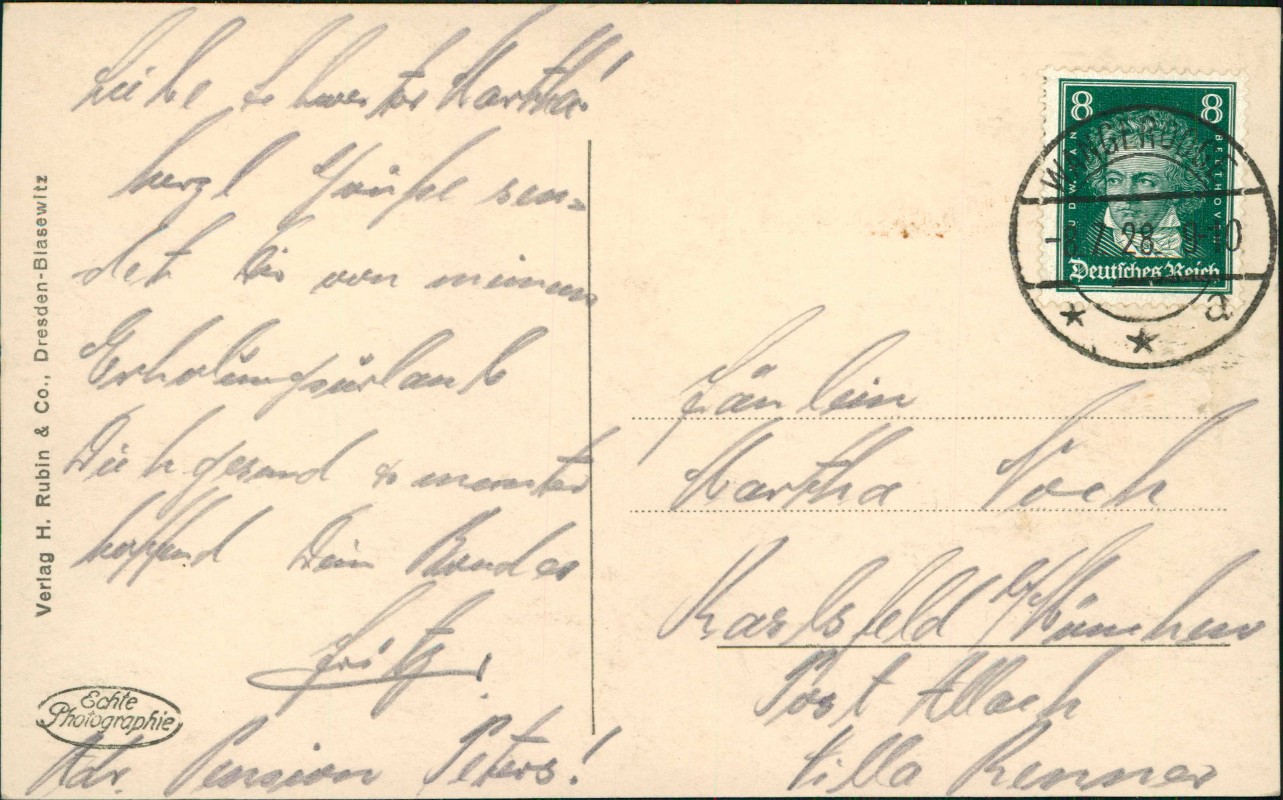 Liebe Schwester Martha!
herzl Grüße sen=
det Dir von meinem
Erholungsurlaub
Dich gesund & munter
hoffend Dein Bruder
Fritz.
Adr. Pension Peters!
Verlag H. Rubin & Co., Dresden-Blasewitz
Echte
Photographie
8 8
LUDW. VAN BEETHOVEN
Deutsches Reich
WANGEROOGE
7. 28. 9-10
a
Fräulein
Martha Koch
Karlsfeld b/München
Post Allach
Villa Renner